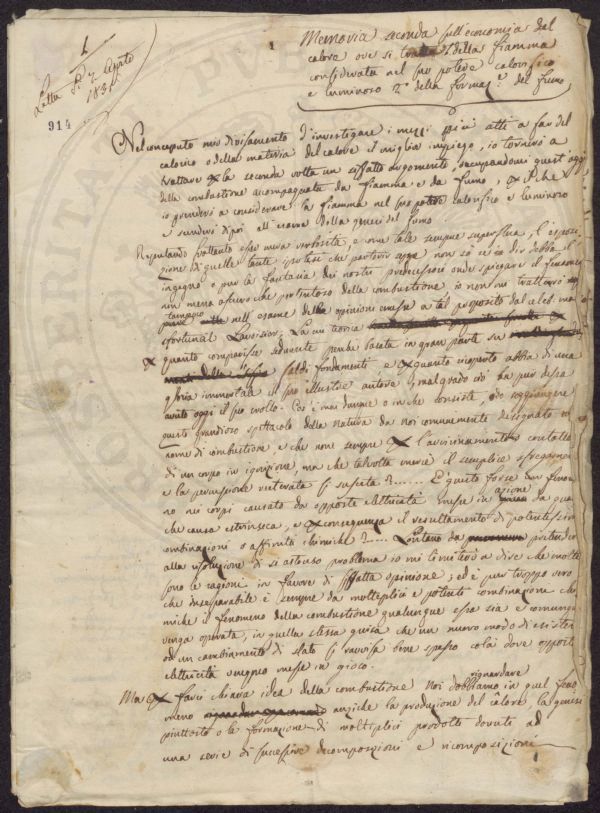 1
Letta il 2 Agosto
1831
914
1
Memoria seconda sull'economia del
calore ove si tratta 1° della fiamma
considerata nel suo potere calorifico
e luminoso 2° della formaz.e del fumo
Nel concepito mio divisamento d'investigare i mezzi più atti a far del
calorico o della materia del calore il miglior impiego, io tornerò a
trattare la seconda volta un siffatto argomento, occupandomi quest'oggi
della combustione accompagnata da fiamma e da fumo, il che
io prenderò a considerare la fiamma nel suo potere calorifico e luminoso
e scenderò dipoi all'esame della genesi del fumo
Reputando frattanto esser mera verbosità, e come tale sempre superflua, l'esposi
zione di quelle tante ipotesi che partorir seppe non so se io dir debba l'
ingegno o pur la fantasia dei nostri predecessori onde spiegare il fenomeno
non meno oscuro che portentoso della combustione, io non mi tratterrò
tampoco nell'esame delle opinioni emesse a tal proposito dal celeb. ma
sfortunat. Lavoisier. La cui teoria
quanto comparisse seducente perché basata in gran parte su
saldi fondamenti, e quanto ricoperto abbia di una
gloria immortale il suo illustre autore, malgrado ciò ha pur dessa
avuto oggi il suo crollo. Cos'è mai dunque o in che consiste, odo soggiungere
questo grandioso spettacolo della natura da noi comunemente designato col
nome di combustione, e che non sempre l'avvicinamento o contatto
di un corpo in ignizione, ma che talvolta mercè il semplice sfregamento
e la percussione reiterata si suscita?...... È questo forse un fenome
no nei corpi causato da opposte elettricità messe in azione da qual
che causa estrinseca, e conseguenza il resultamento di potentissime
combinazioni o affinità chimiche?..... Lontano da pretender
alla risoluzione di sì astruso problema io mi limiterò a dire che molte
sono le ragioni in favore di siffatta opinione; ed è pur troppo vero
che inseparabile è sempre da molteplici e potenti combinazione chi
miche il fenomeno della combustione qualunque essa sia e comunque
venga operata, in quella stessa guisa che un nuovo modo di esistere
od un cambiamento di stato si ravvisa bene spesso colà dove opposte
elettricità vengono messe in gioco.
Ma farci chiara idea della combustione noi dobbiamo riguardare in quel feno
meno anzichè la produzione del calore, la genesi
piuttosto o la formazione di molteplici prodotti dovuti ad
una serie di successive decomposizioni e ricomposizioni